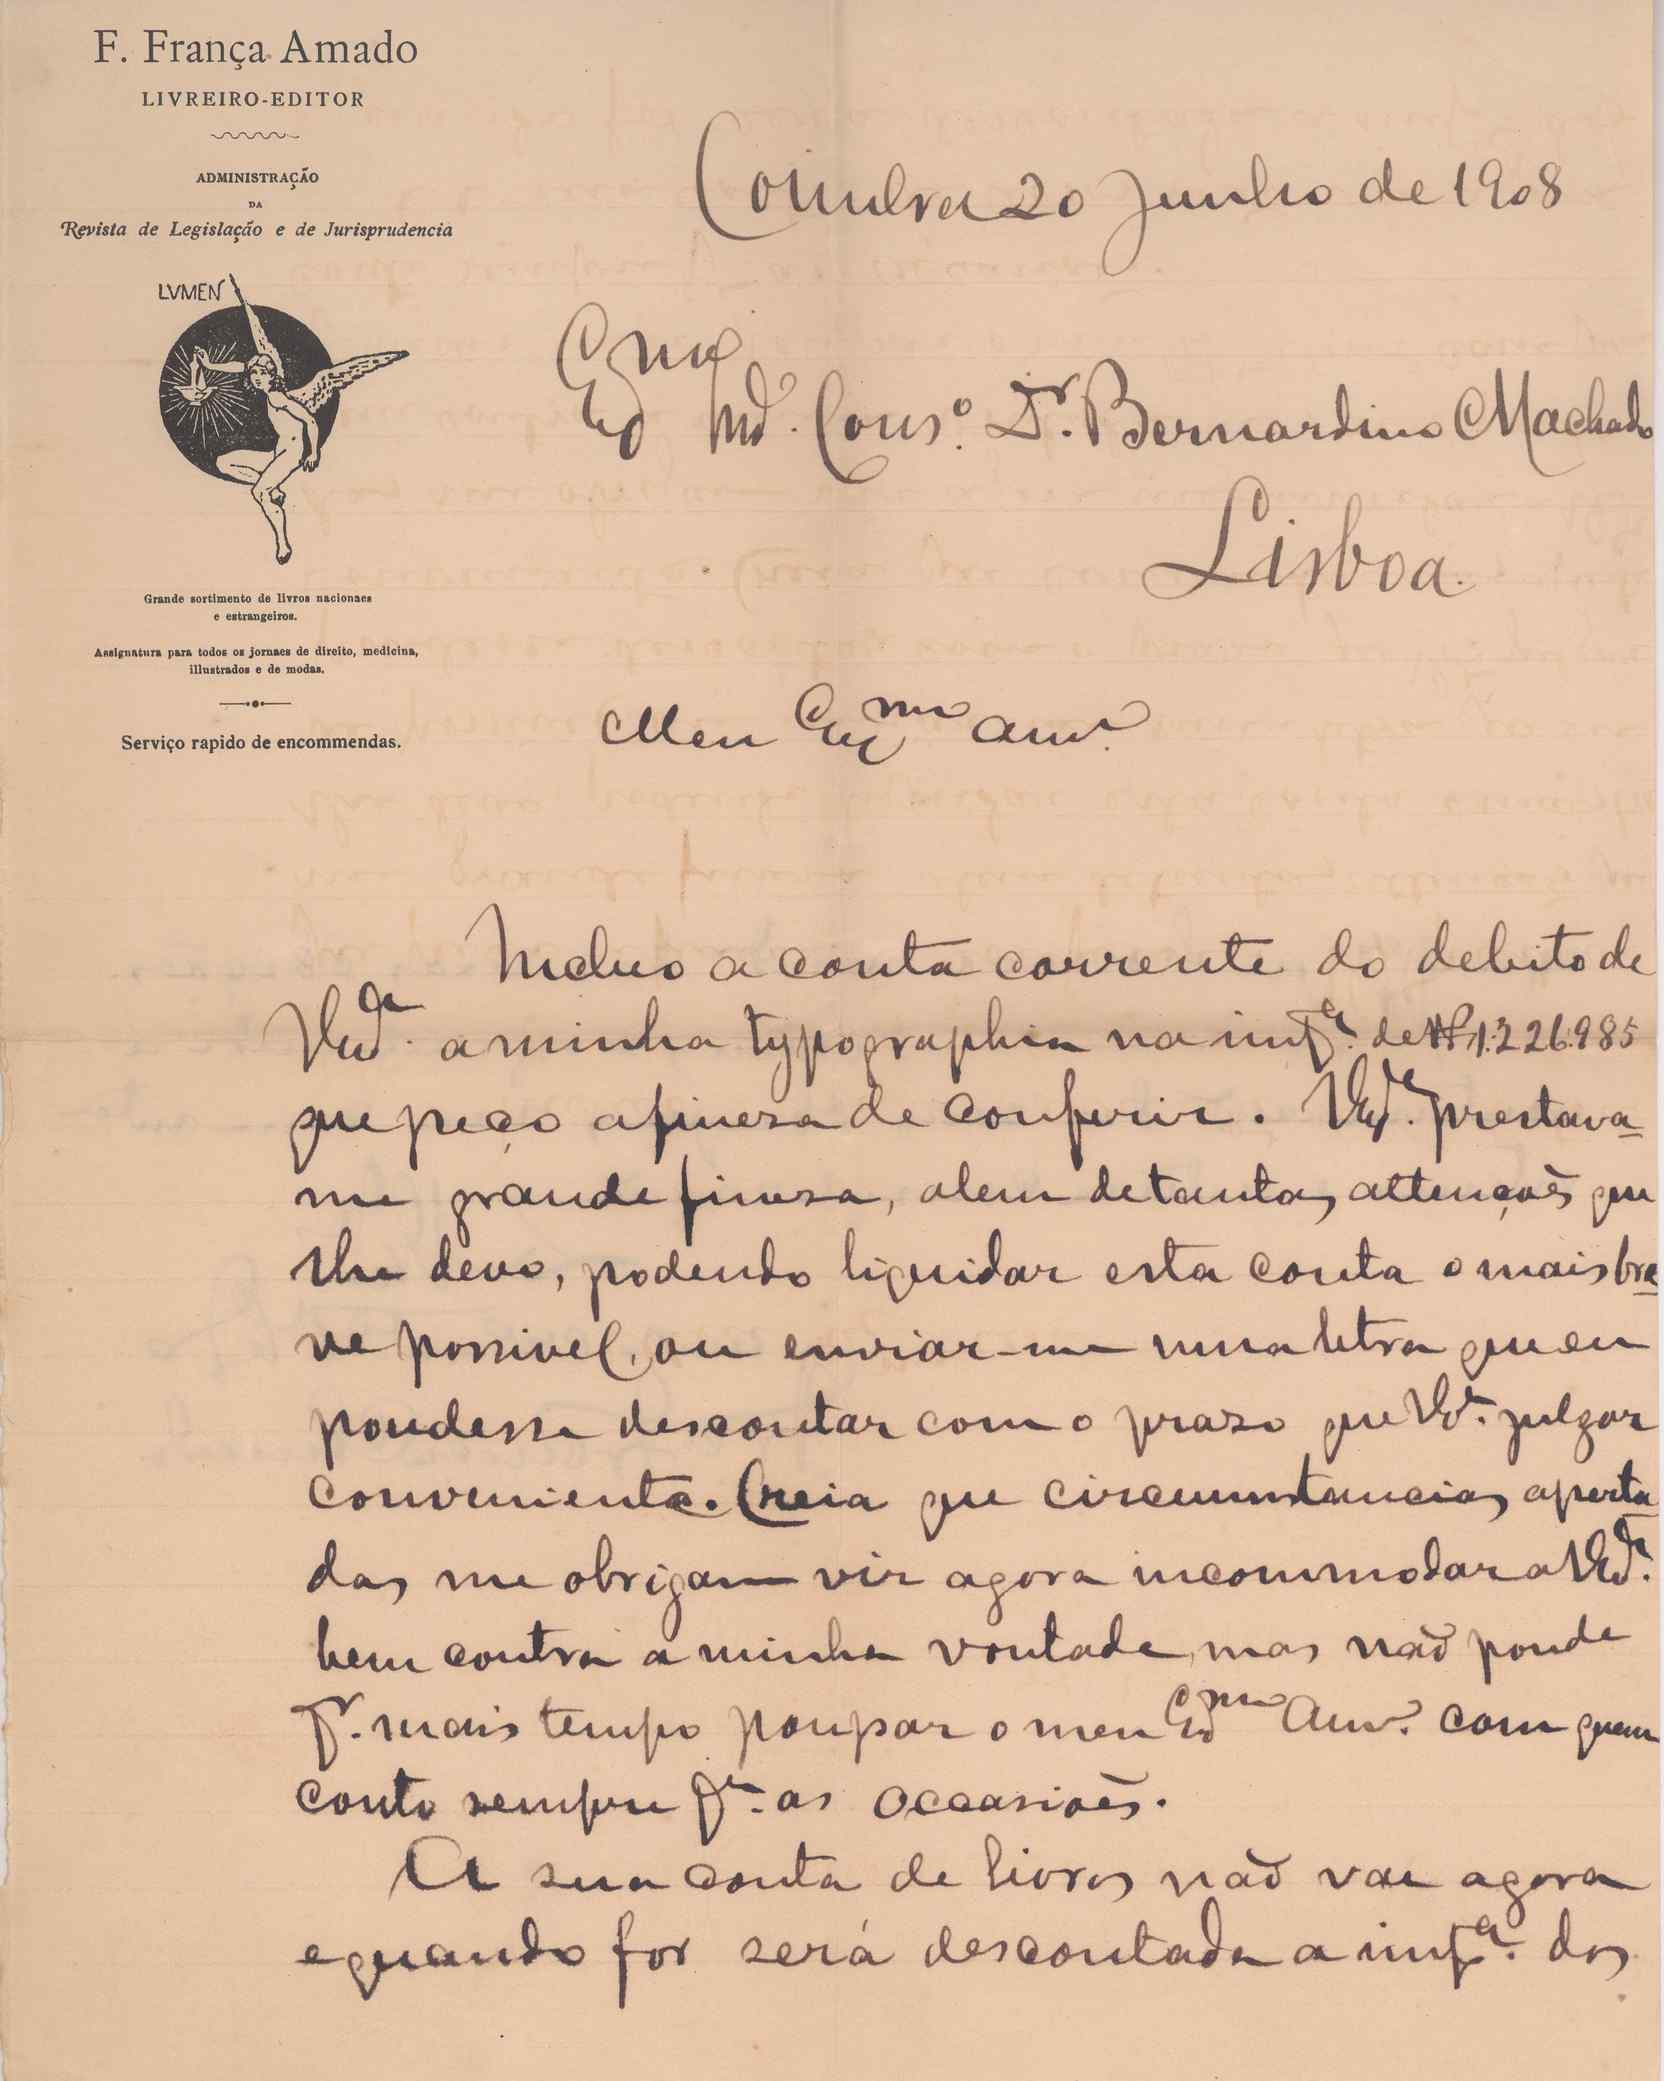 F. França Amado
LIVREIRO-EDITOR
ADMINISTRAÇÃO
DA
Revista de Legislação e de Jurisprudencia
LVMEN
Grande sortimento de livros nacionaes
e estrangeiros.
Assignatura para todos os jornaes de direito, medicina,
illustrados e de modas.
Serviço rapido de encommendas.
Coimbra 20 Junho de 1908
Exmo Snr. Conso. Dr. Bernardino Machado
Lisboa.
Meu Exmo amo.
Incluo a conta corrente do debito de
V. Exa. a minha typographia na impa. de 1:226:985
que peço a fineza de conferir. V. Exa. prestava-
me grande fineza, alem de tantas attenções que
lhe devo, podendo liquidar esta conta o mais bre-
ve possivel, ou enviar-me uma letra que eu
poudesse descontar com o prazo que V. Exa. julgar
conveniente. Creia que circumstancias aperta
das me obrigam vir agora incommodar a V. Exa.
bem contra a minha vontade, mas não poude
pr. mais tempo poupar o meu Exmo Amo. com quem
conto sempre pa. as occasiões.
A sua conta de livros não vae agora
e quando for será descontada a impa. dos